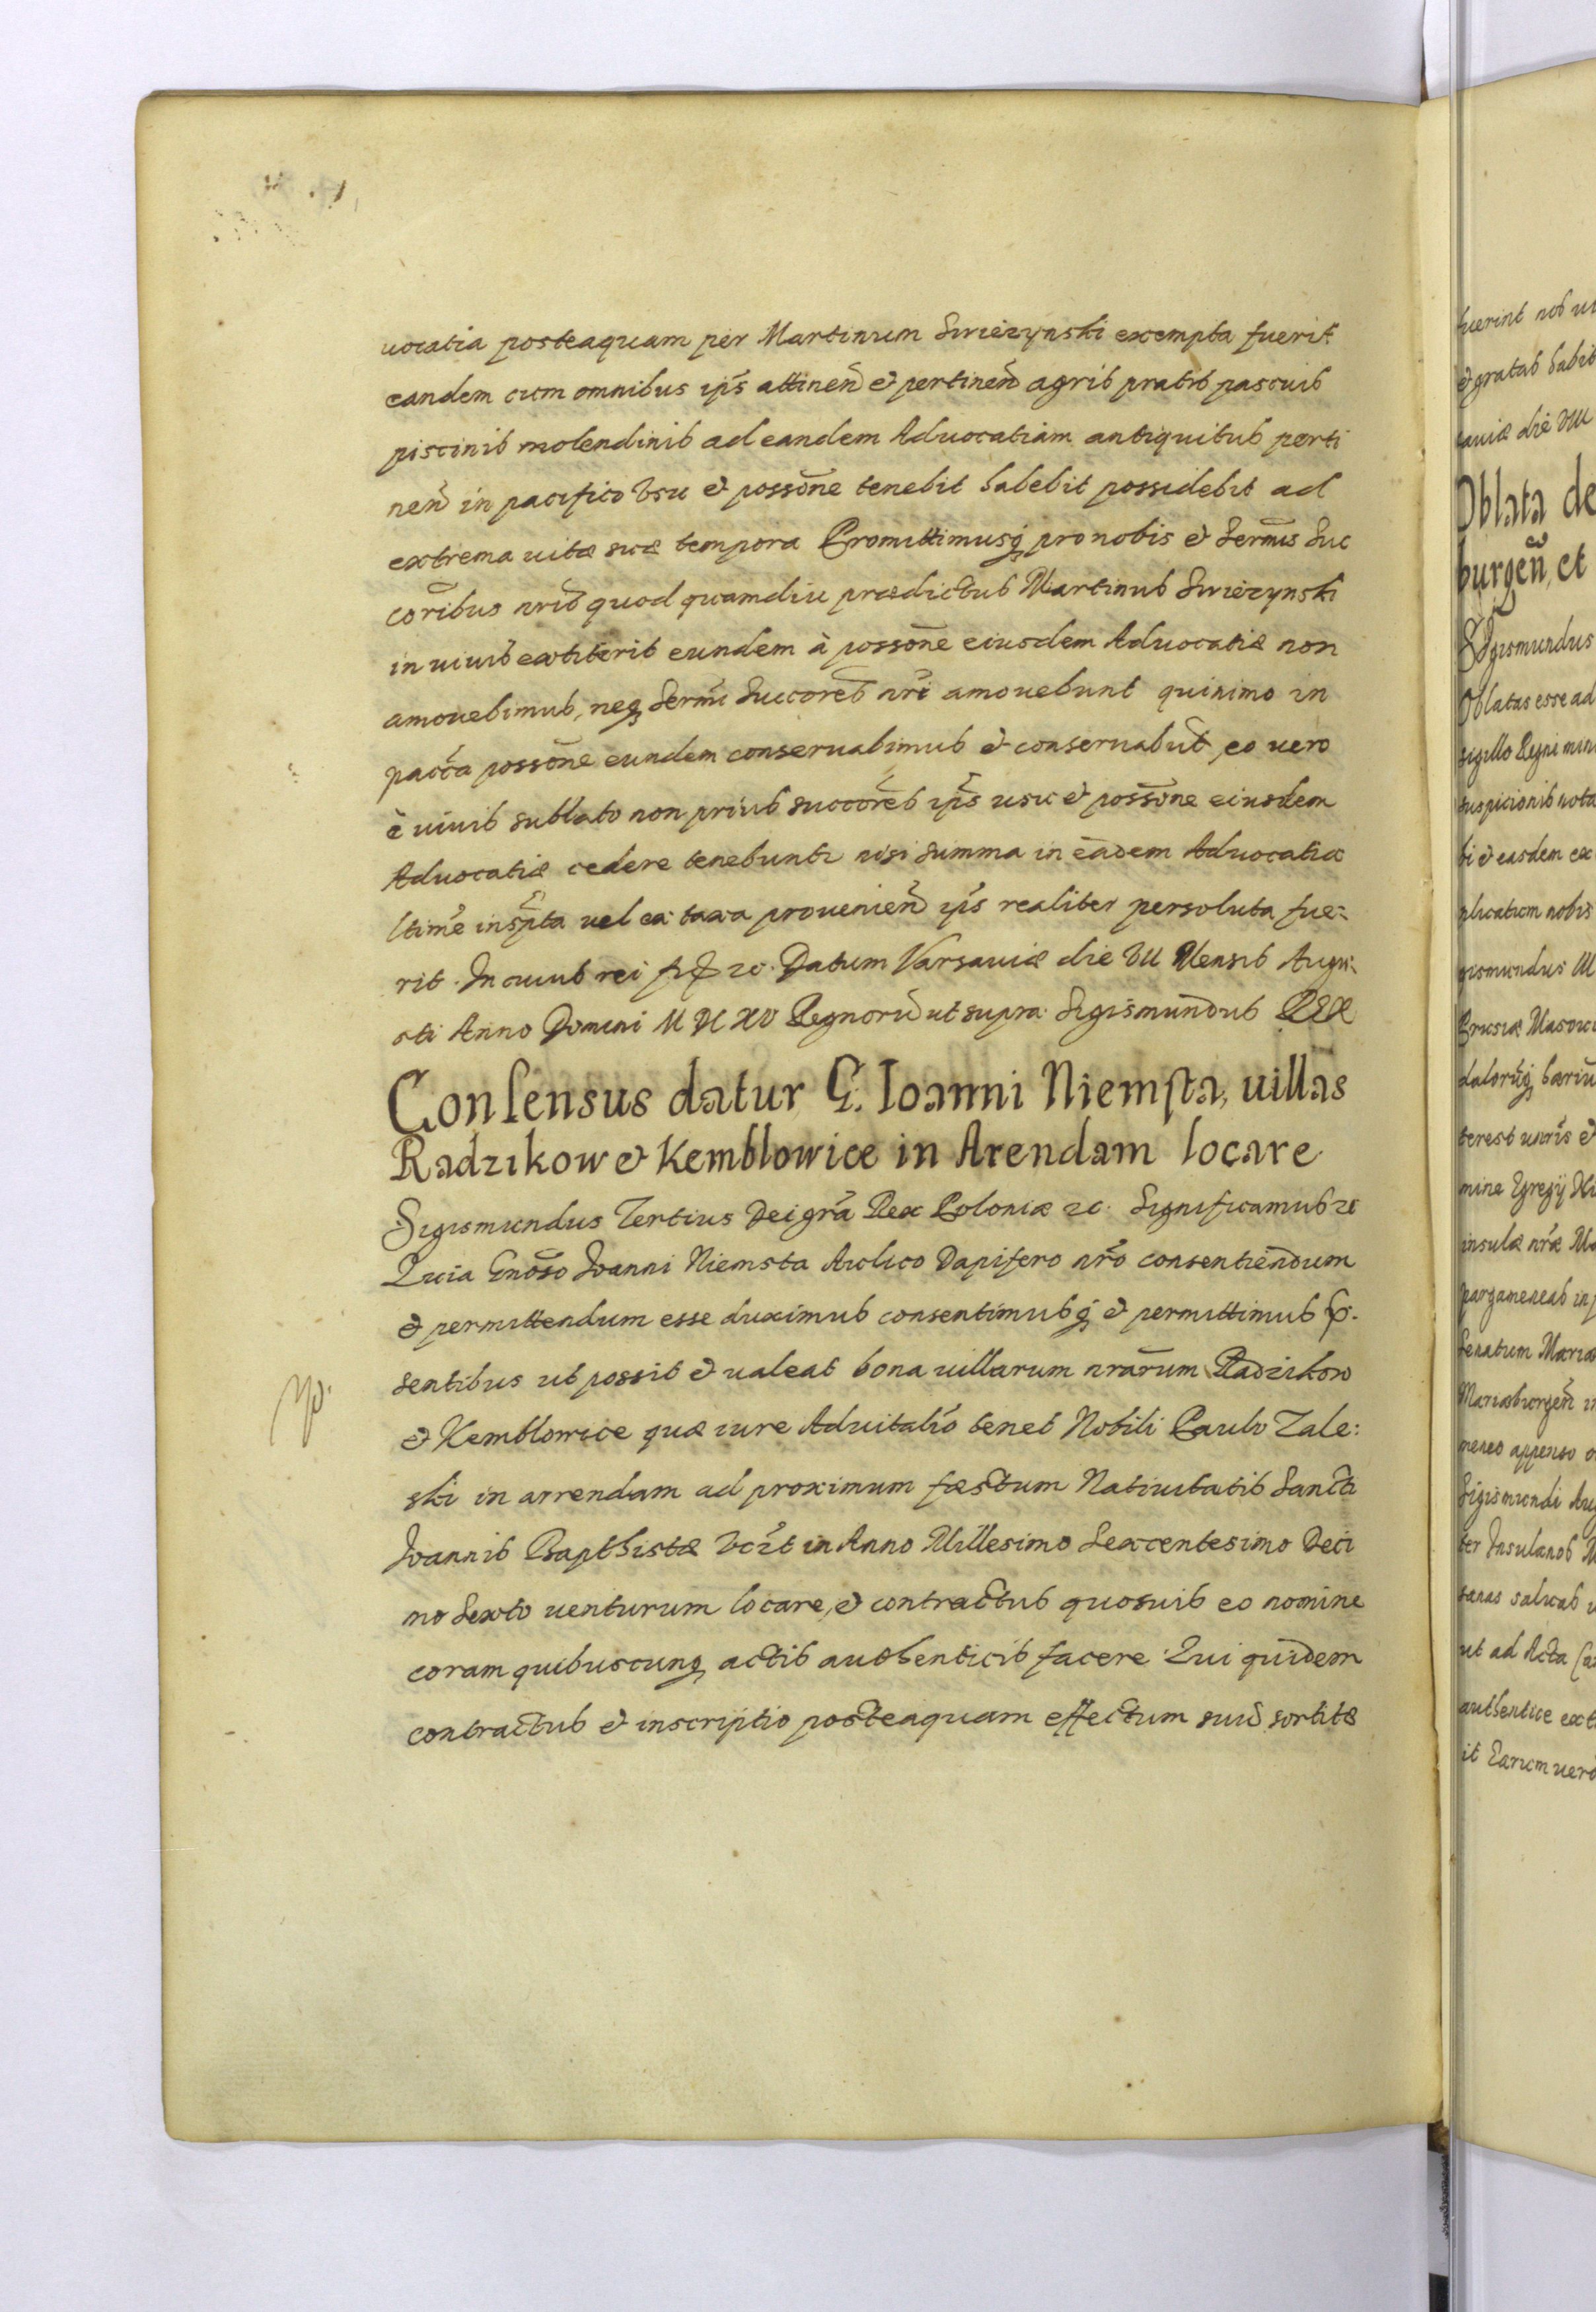 uocatia posteaquam per Martinum Swiezynski exempta fuerit
eandem cum omnibus ip̄s attineñ & pertineñ agris pratis pascuis
piscinis molendinis ad eandem Aduocatiam antiquitus perti
neñ in pacifico Vsu & possōne tenebit habebit possidebit ad
extrema uitæ suæ tempora Promittimusq₃ pro nobis & Serm̄is Suc
cor̄ibus nr̄is quod quamdiu prædictus Martinus Swiezynski
in uiuis extiterit eundem à possōne eiusdem Aduocatiæ non
amouebimus, neq₃ Serm̄i Succores nr̄i amouebunt quinimo in
pacc̄a possōne eundem conseruabimus & conseruabūt, eo uero
è uiuis sublato non prius succōres ip̄s usu & possōne eiusdem
Aduocatiæ cedere tenebuntr nisi summa in eadem Aduocatia
ltime insp̄ta uel ex taxa proueniēn ip̄s realiter persoluta fue:
rit. In cuius rei fiꝑ ꝛc. Datum Varsauiæ die VII Mensis Augu:
sti Anno Domini M DC XV Regnorū ut supra Sigismundus REX
Consensus datur G. Ioanni Niemsta, uillas
Radzikow & Kemblowice in Arendam locare
Sigismundus Tertius Dei gr̄a Rex Poloniæ ꝛc. Significamus ꝛc
Quia Gnōso Ioanni Niemsta Aulico Dapifero nr̄o consentiendum
& permittendum esse duximus consentimusq₃ & permittimus p̄.
sentibus ut possit & ualeat bona uillarum nrārum Radzikow
& Kemblowice quæ iure Aduitalio tenet Nobili Paulo Zale:
ski in arrendam ad proximum fæstum Natiuitatis Sancti
Joannis Baptistæ Vc̄it in Anno Millesimo Sexcentesimo Deci
mo Sexto uenturum locare, & contractus quosuis eo nomine
coram quibuscunq₃ actis authenticis facere. Qui quidem
contractus & inscriptio posteaquam effectum suū sortitæ
fuerint nos
& gratas habit
sauiæ die VIII
Oblata de
burgen̄, et
Sigismundus
Oblatas esse ad
sigillo Regni min
suspicionis nota
bi & easdem ex
plicatum nobis
gismundus
Prusiæ Masoui
dalorūq₃
terest
mine Egregij
insulæ nr̄æ Ma
pargameneas in
Senatum Mariæ
Mariæburgen̄
meneo appenso
Sigismundi Aug
ter Insulanos
sanas saluas
ut ad Acta
authentice ext
it Earum uero